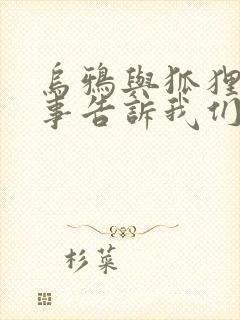 烏鴉與狐狸
事告訴我们
杉菜